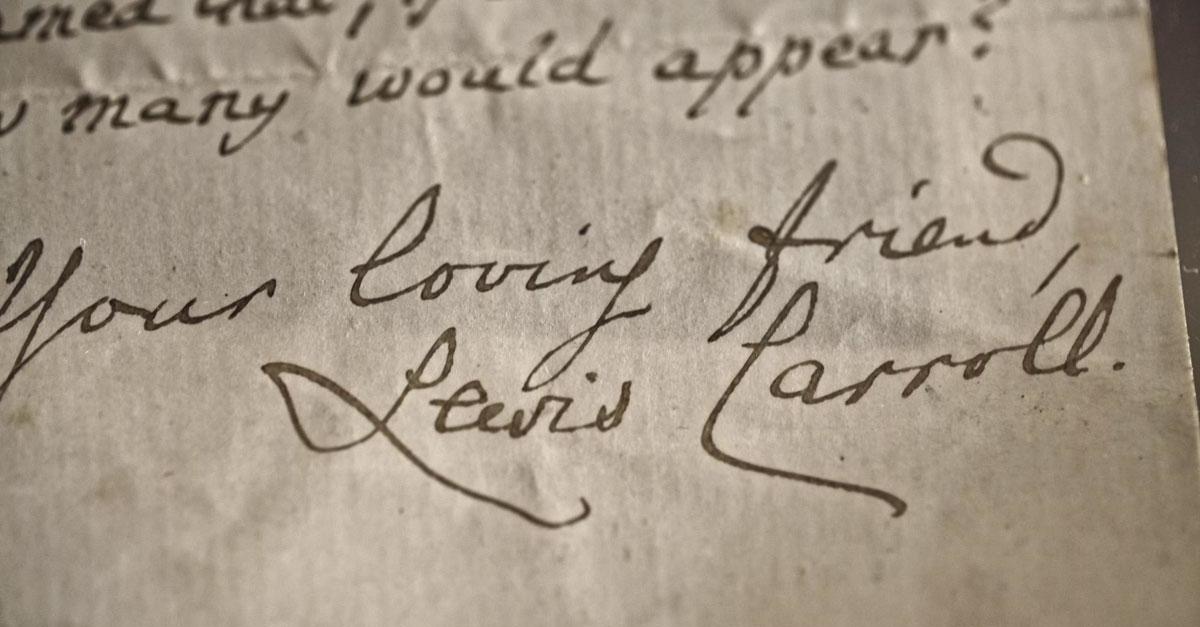 many would appear?
Your loving friend,
Lewis Carroll.